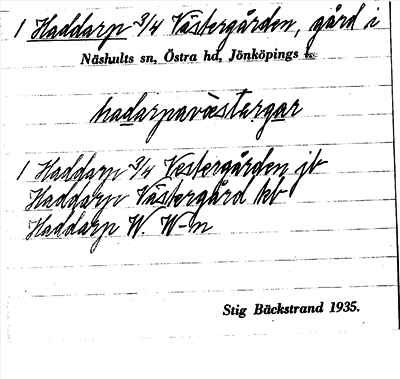 1 Haddarp 3/4 Västergården, gård i
Näshults sn, Östra hd, Jönköpings
hadarpavästargar
1 Haddarp 3/4 Vestergården jb
Haddarp Västergård kb
Haddarp W. W-n
Stig Bäckstrand 1935.